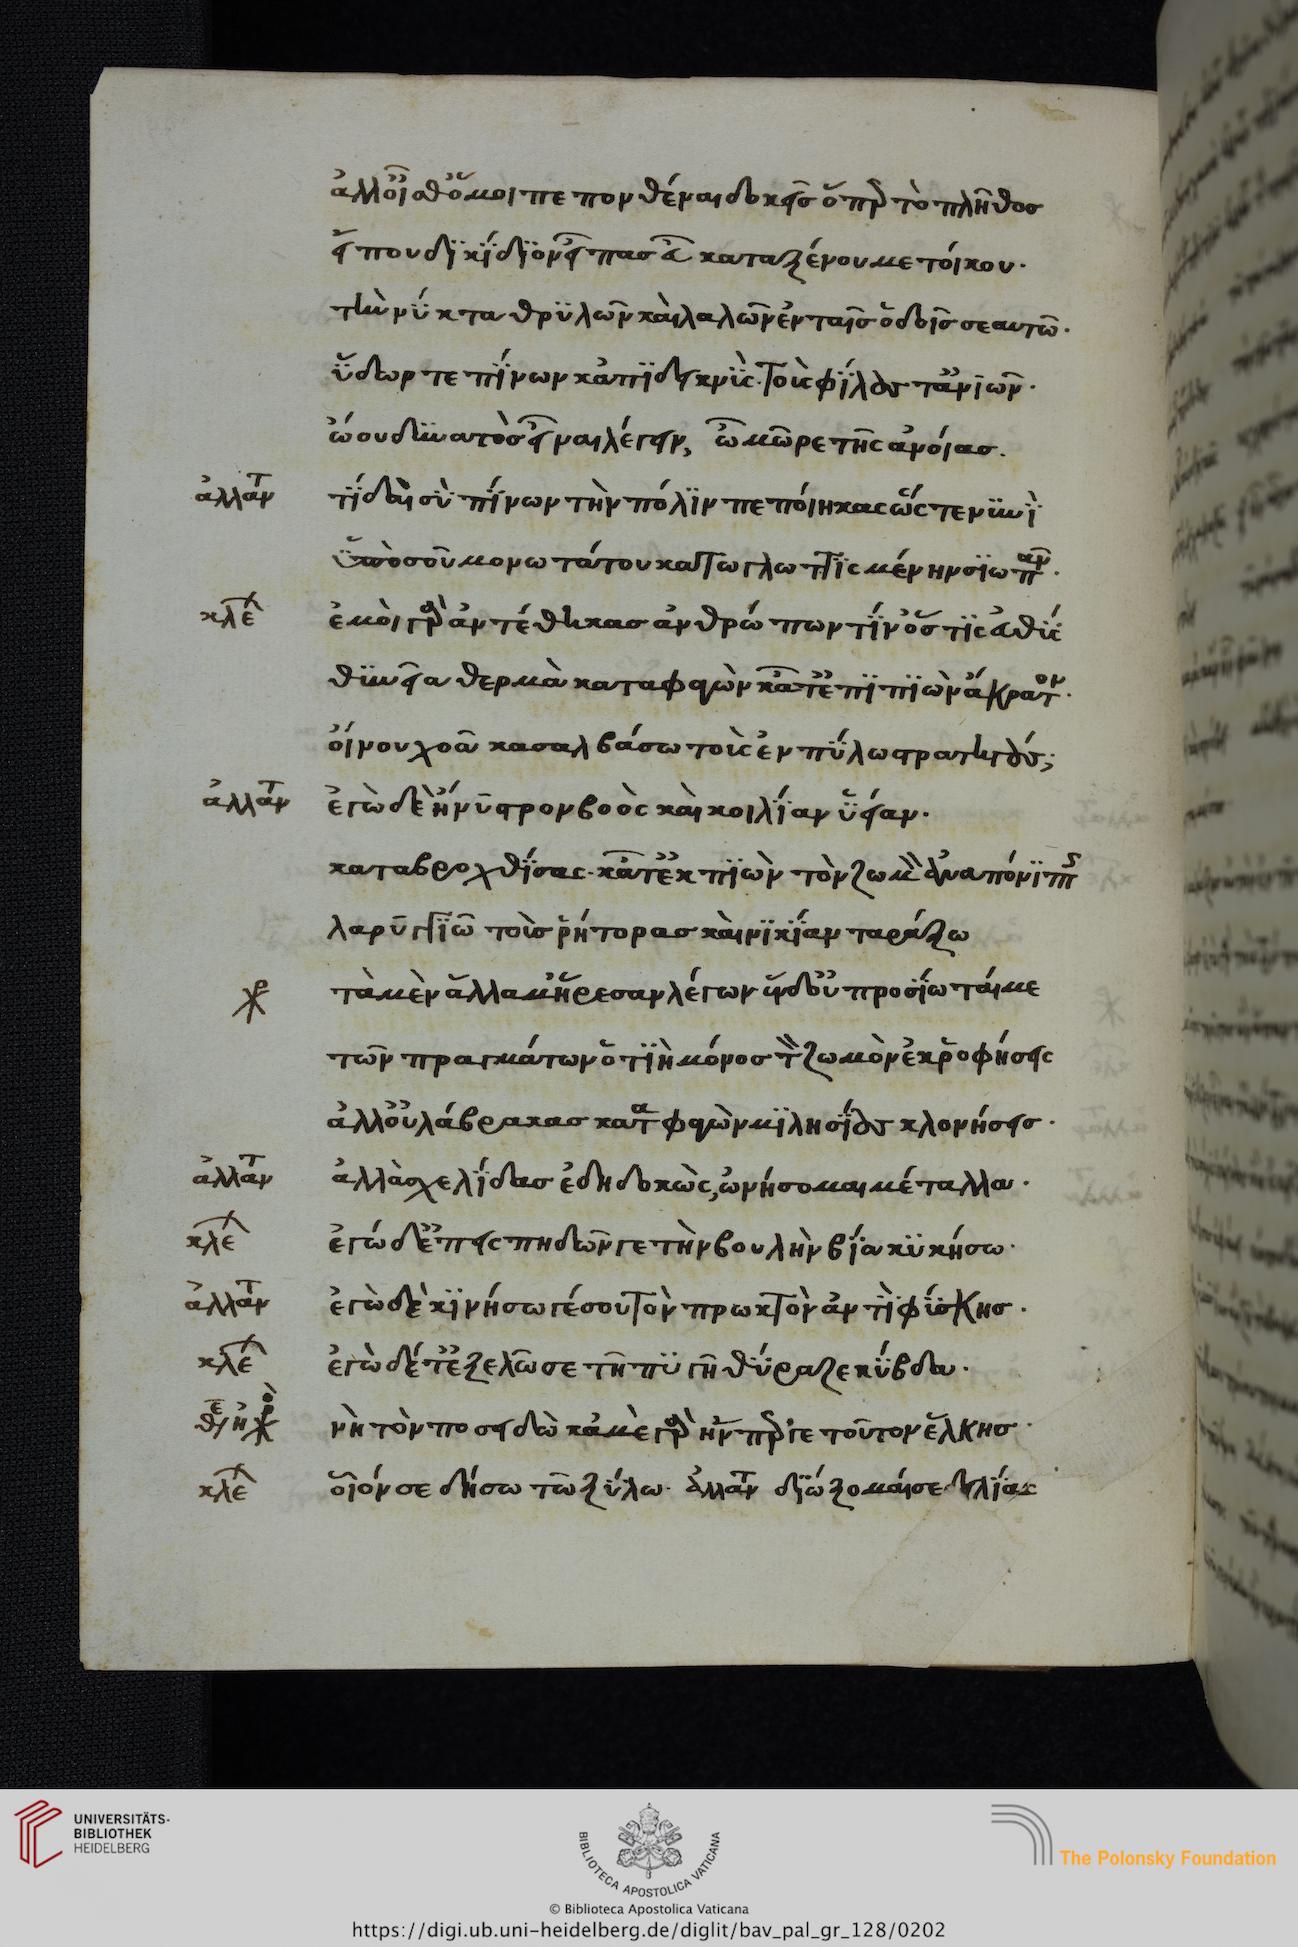 ἀλλ' οἶσθ' ὅ μοι πεπονθέναι δοκεῖς ὅπερ τὸ πλῆθος
εἴ που δικίδιον εἶπας εὖ κατα ξένου μετοίκου·
τὴν νύκτα θρυλῶν καὶ λαλῶν ἐν ταῖς ὁδοῖς σεαυτῶ·
ὕδωρ τε πίνων κἀπιδεικνὺς τοὺς φίλους τ' ἀνιῶν·
ὤου δυνατὸς εἶναι λέγειν, ὦ μῶρε τῆς ἀνοίας.
ἀλλαν τί δαὶ σὺ πίνων τὴν πόλιν πεποίηκας ὥστε νυνὶ
ὑπὸ σοῦ μονωτάτου κατεγλωττισμένην σιωπαν·
κλε ἐμοὶ γὰρ ἀντέθηκας ἀνθρώπων τίν' ὅστις εὐθὺς
θύννεια θερμὰ καταφαγὼν κᾆτ' ἐπιπιὼν ἄκρατον·
οἴνου χοᾶ κασαλβάσω τοὺς ἐν πύλω στρατηγούς;
ἀλλαν ἐγὼ δὲ ἤνυστρον βοὸς καὶ κοιλίαν ὑείαν·
καταβροχθίσας· κᾆτ' ἐκπιὼν τὸν ζωμὸν ἀναπόνιπτος
λαρυγγιῶ τοὺς ῥήτορας καὶ νικίαν ταράξω
χορ τὰ μὲν ἄλλα μ' ἤρεσαν λέγων ἓν δ' οὐ προσίεταί με
τῶν πραγμάτων ὅτιὴ μόνος τὸν ζωμὸν ἐκροφήσεις
ἀλλ' οὐ λάβρακας καταφαγὼν μιλησίους κλονήσεις·
ἀλλαν ἀλλὰ σχελίδας ἐδηδοκὼς, ὠνήσομαι μέταλλα·
κλε ἐγώ δ' ἐπεισπηδῶν γε τὴν βουλὴν βία κυκήσω·
ἀλλαν ἐγὼ δὲ κινήσω γέ σου τὸν πρωκτὸν ἀντὶ φύσκης·
κλε ἐγὼ δέ γ' ἐξελῶ σε τῆ πυγῆ θύραζε κύβδα·
θε ἢ χορ νὴ τὸν ποσειδῶ κἀμὲ γὰρ ἤνπερ γε τοῦτον ἕλκης·
κλε οἷόν σε δήσω τῶ ξύλω· ἀλλαν διώξομαί σε δειλίας
UNIVERSITÄTS-
BIBLIOTHEK
HEIDELBERG
BIBLIOTECA APOSTOLICA VATICANA
The Polonsky Foundation
© Biblioteca Apostolica Vaticana
https://digi.ub.uni-heidelberg.de/diglit/bav_pal_gr_128/0202